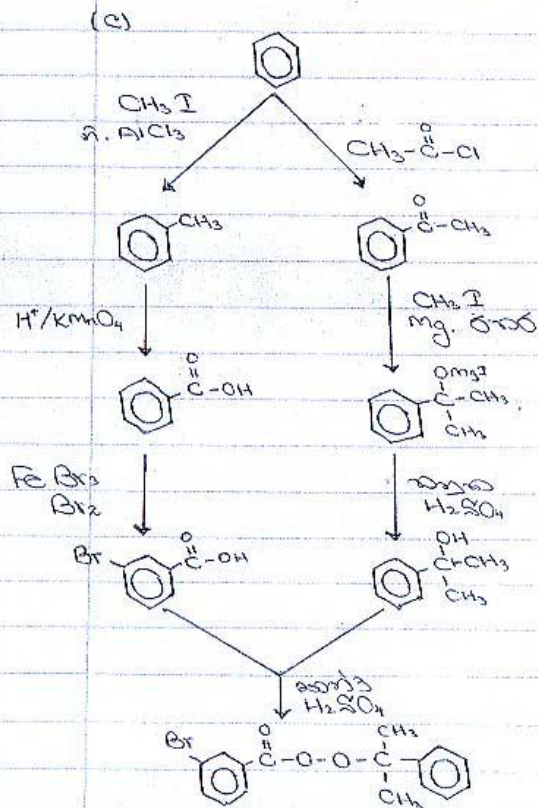 (c)
CH₃ I
නි. AlCl₃
CH₃-C-Cl
O
CH₃
O
C-CH₃
H⁺/KMnO₄
CH₃ I
Mg.
O
C-OH
OMgI
C-CH₃
CH₃
FeBr₃
Br₂
තනුක
H₂SO₄
Br
O
C-OH
OH
C-CH₃
CH₃
සාන්ද්‍ර
H₂SO₄
Br
O
C-O-O-C
CH₃
CH₃